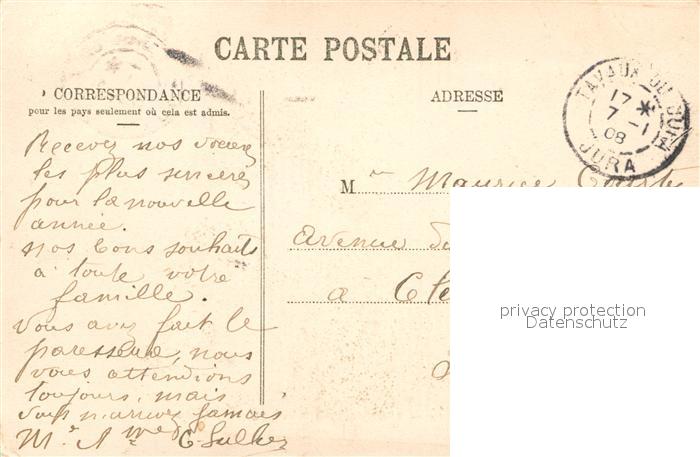 CARTE POSTALE
CORRESPONDANCE
pour les pays seulement où cela est admis.
ADRESSE
TAVAUX DU JURA
17 *
7 -1
08
JURA
Recevez nos voeux
les plus sincères
pour la nouvelle
année.
nos bons souhaits
à toute votre
famille.
Vous avez fait le
paresseux, nous
vous attendions
toujours, mais
vous n'arrivez jamais
Mr & Mme
M r Maurice
avenue
à
privacy protection
Datenschutz